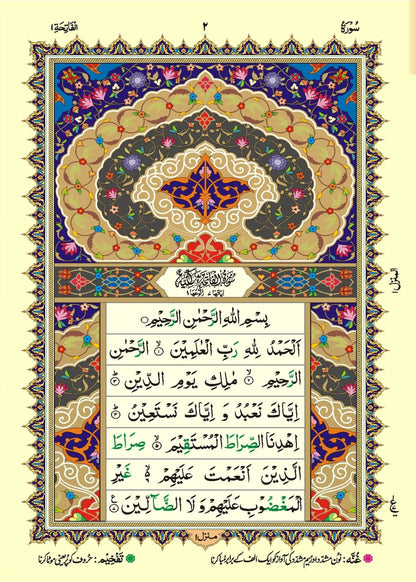 سُوۡرَةُ ۲ اَلۡفَاتِحَة ۱
سُوۡرَةُ الۡفَاتِحَةِ مَكِّيَّةٌ
بِسۡمِ اللهِ الرَّحۡمٰنِ الرَّحِيۡمِ
اَلۡحَمۡدُ لِلّٰهِ رَبِّ الۡعٰلَمِيۡنَ ۙ‏ ۱ الرَّحۡمٰنِ
الرَّحِيۡمِ ۙ‏ ۲ مٰلِكِ يَوۡمِ الدِّيۡنِ ؕ‏ ۳
اِيَّاكَ نَعۡبُدُ وَ اِيَّاكَ نَسۡتَعِيۡنُ ؕ‏ ۴
اِهۡدِنَا الصِّرَاطَ الۡمُسۡتَقِيۡمَ ۙ‏ ۵ صِرَاطَ
الَّذِيۡنَ اَنۡعَمۡتَ عَلَيۡهِمۡ ۙ ۶ غَيۡرِ
الۡمَغۡضُوۡبِ عَلَيۡهِمۡ وَ لَا الضَّآلِّيۡنَ ۷
منزل ۱
غُنَّه: نون مشدد اور میم مشدد کی آواز کو ایک الف کے برابر لمبا کرنا
تَفْخِیْم: حروف کو پُر یعنی موٹا کرنا